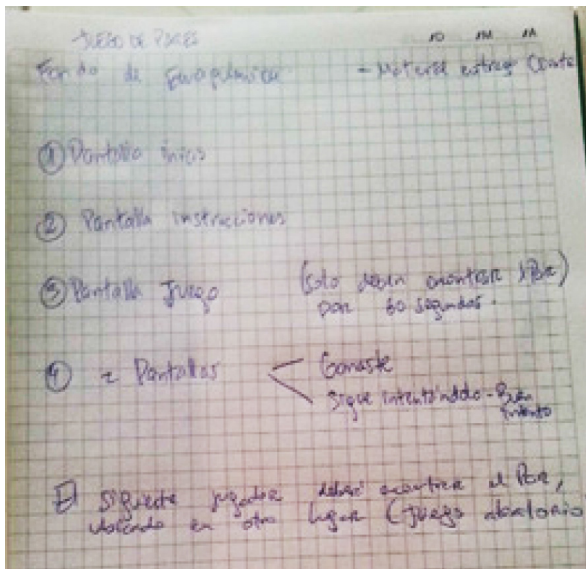 JUEGO DE PARES
Fondo de - Material
① Pantalla inicio
② Pantalla instrucciones
③ Pantalla Juego (solo deben encontrar 1 Par)
por 60 segundos.
④ 2 Pantallas Ganaste
Sigue intentándolo - Buen
intento
El siguiente jugador deberá encontrar el Par,
ubicado en otro lugar (Juego aleatorio